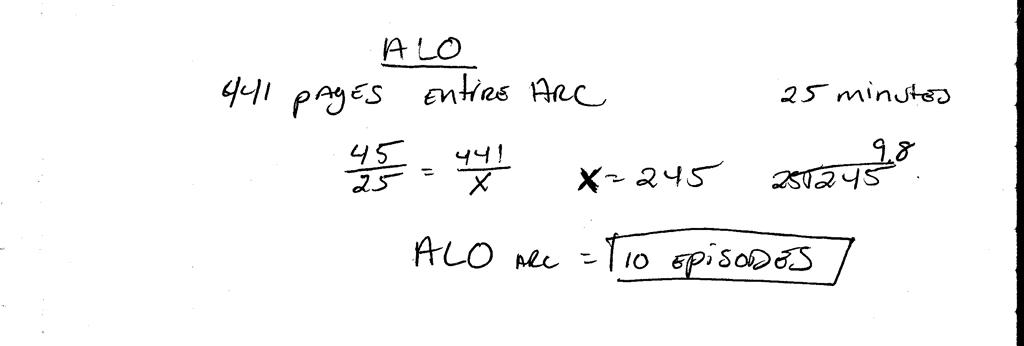 ALO
441 pages entire Arc 25 minutes
45/25 = 441/X X = 245 25)245 9.8
ALO Arc = 10 episodes